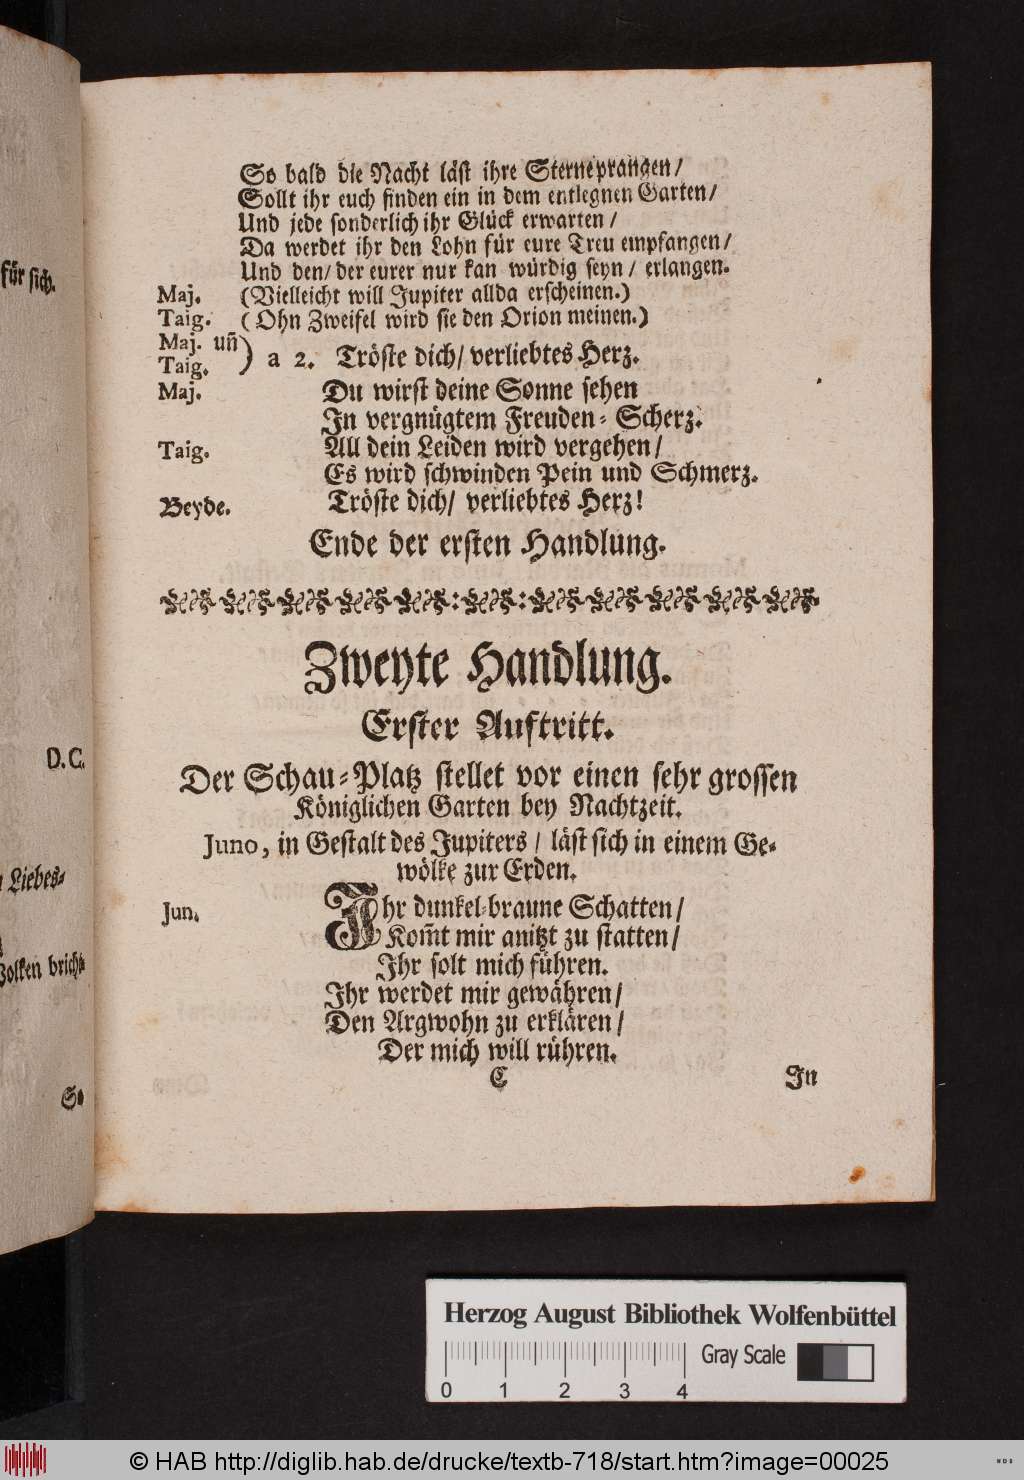 So bald die Nacht läst ihre Sterne prangen/
Sollt ihr euch finden ein in dem entlegnen Garten/
Und jede sonderlich ihr Glück erwarten/
Da werdet ihr den Lohn für eure Treu empfangen/
Und den/ der eurer nur kan würdig seyn/ erlangen.
Maj. (Vielleicht will Jupiter allda erscheinen.)
Taig. (Ohn Zweifel wird sie den Orion meinen.)
Maj. uñ
Taig. ) a 2. Tröste dich/ verliebtes Herz.
Maj. Du wirst deine Sonne sehen
In vergnügtem Freuden-Scherz.
Taig. All dein Leiden wird vergehen/
Es wird schwinden Pein und Schmerz.
Beyde. Tröste dich/ verliebtes Herz!
Ende der ersten Handlung.
Zweyte Handlung.
Erster Auftritt.
Der Schau-Platz stellet vor einen sehr grossen
Königlichen Garten bey Nachtzeit.
Juno, in Gestalt des Jupiters/ läst sich in einem Ge-
wölke zur Erden.
Jun. Ihr dunkel-braune Schatten/
Kom̃t mir anitzt zu statten/
Ihr solt mich führen.
Ihr werdet mir gewähren/
Den Argwohn zu erklären/
Der mich will rühren.
C In
für sich.
D.C.
Liebes-
Wolken bricht
So
Herzog August Bibliothek Wolfenbüttel
Gray Scale
0 1 2 3 4
© HAB http://diglib.hab.de/drucke/textb-718/start.htm?image=00025